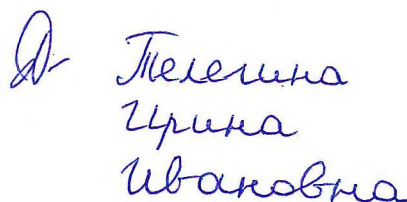 Телегина
Ирина
Ивановна